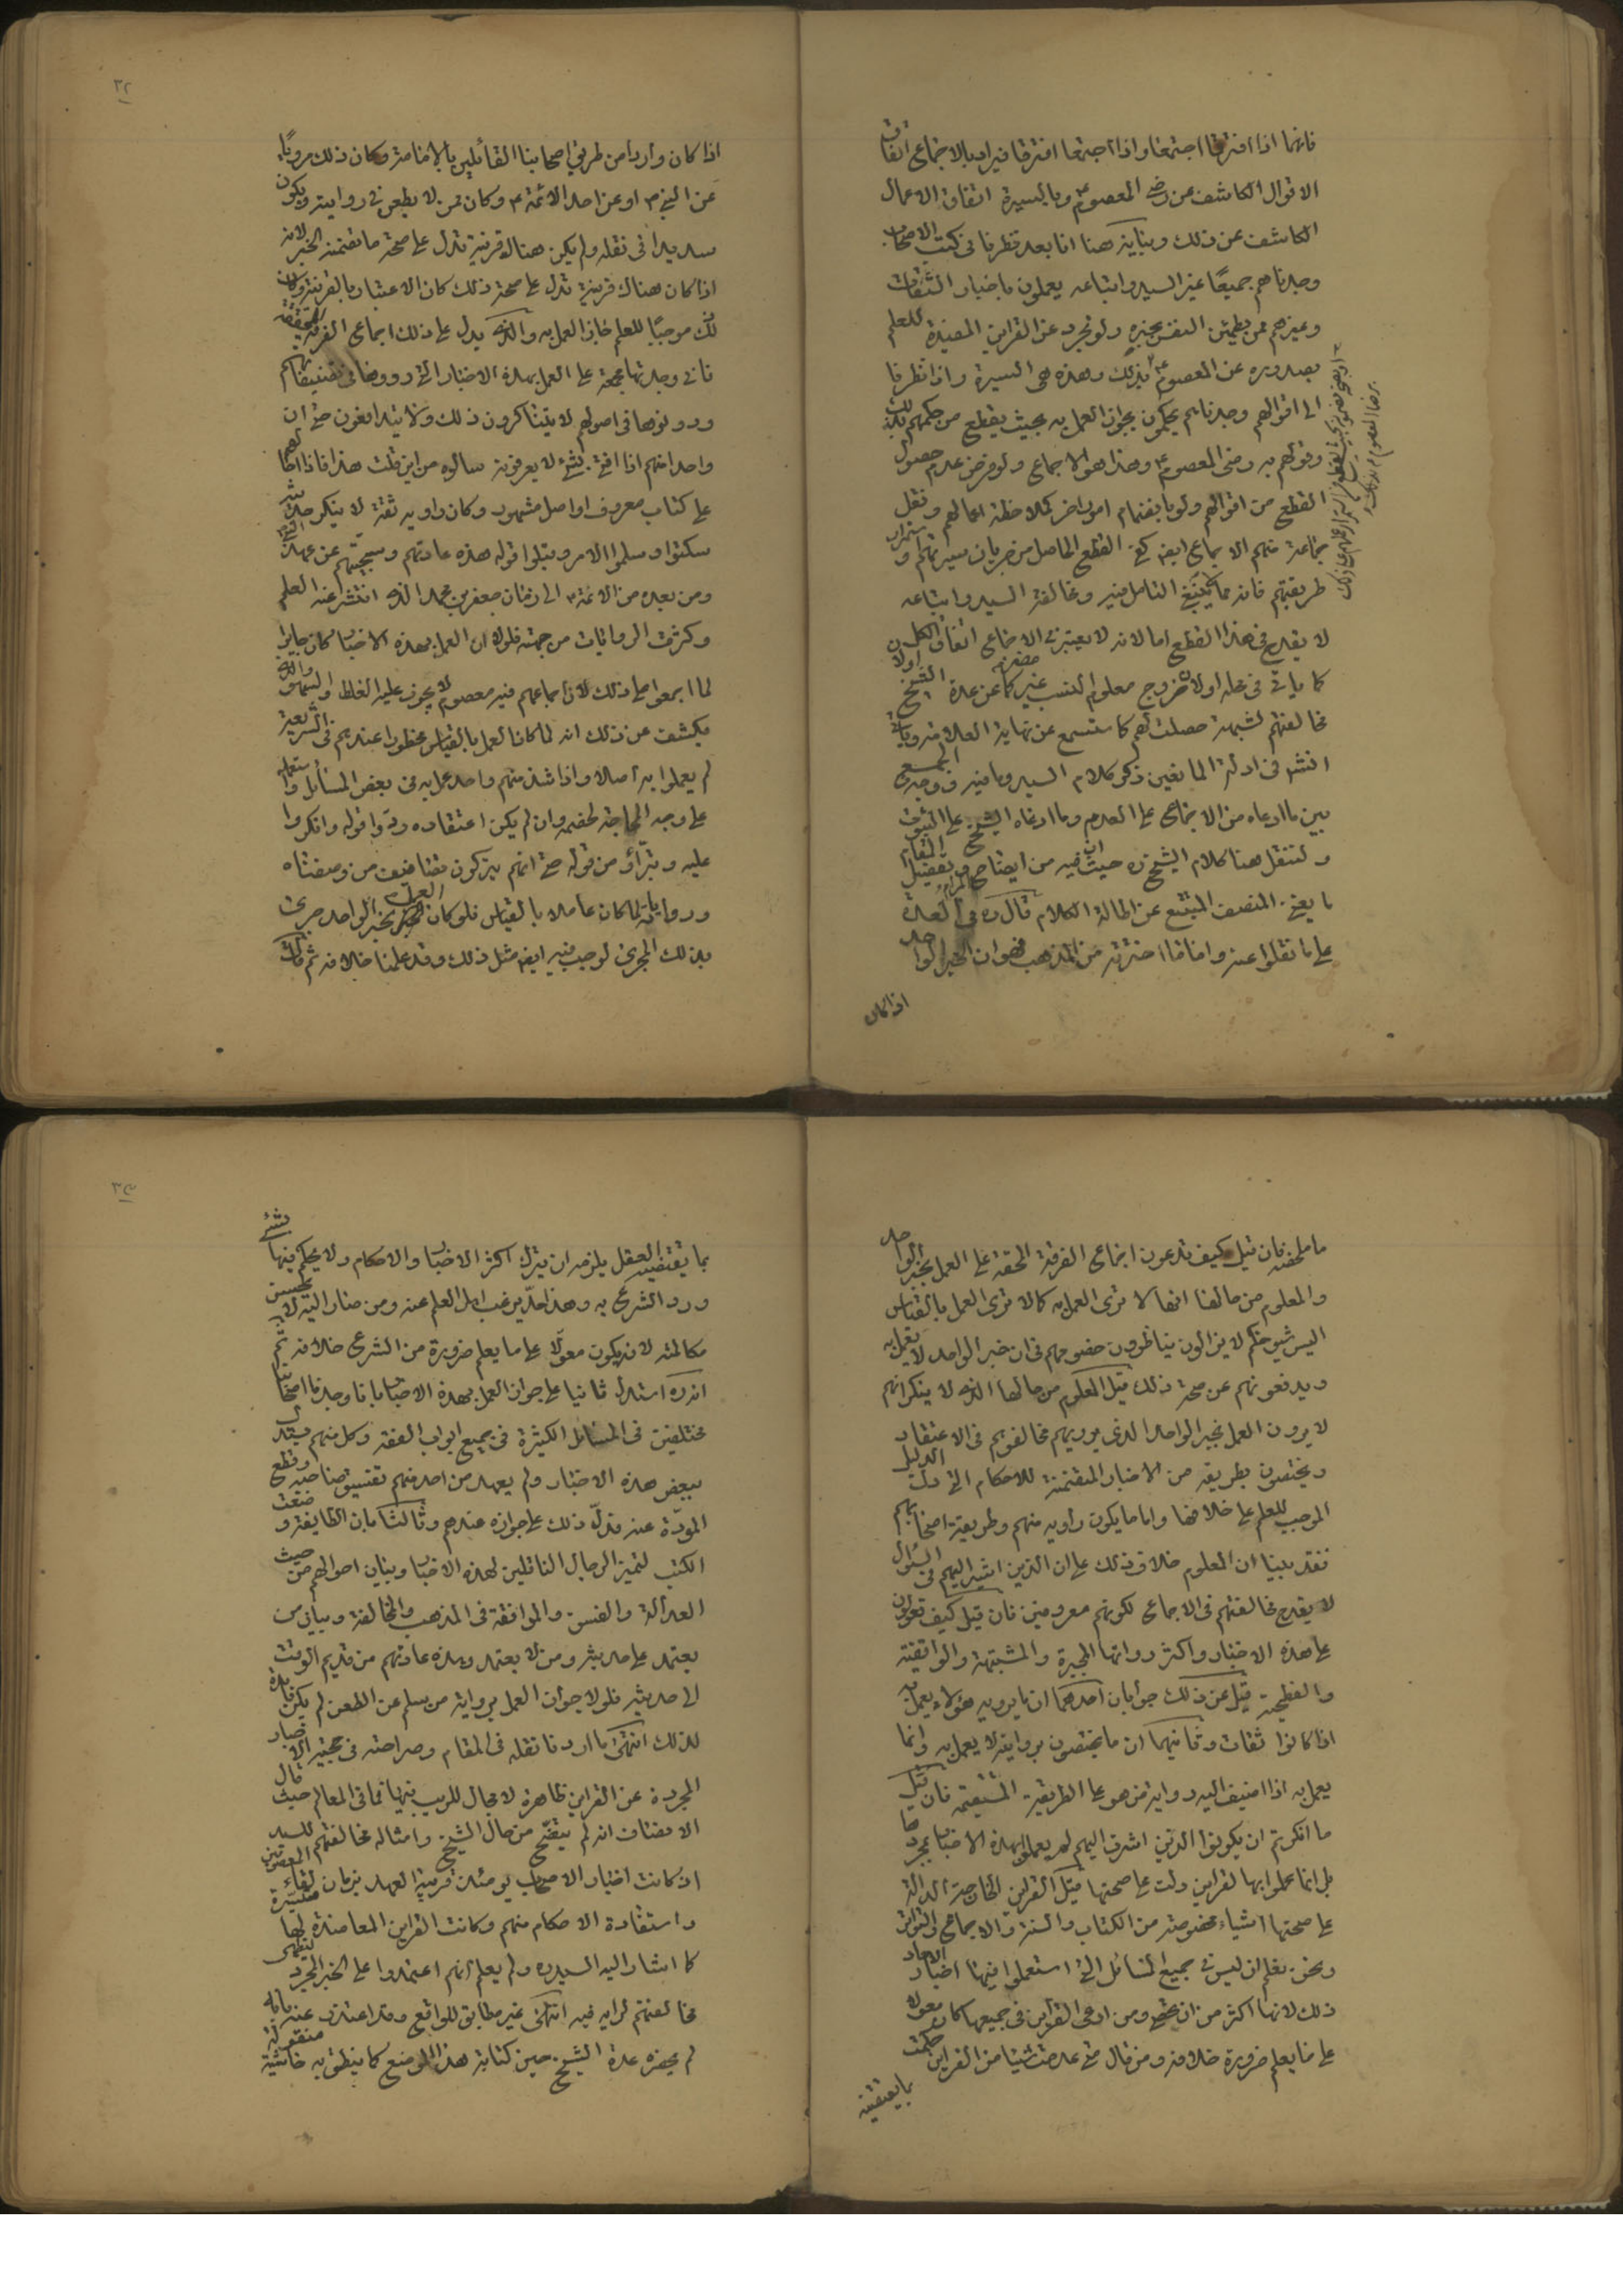 فانهما اذا افترقا اجتمعا واذا اجتمعا افترقا فيراد بالاجماع اتفاق
الاقوال الكاشف عن رضى المعصوم ع وبالسيرة اتفاق الاعمال
الكاشف عن ذلك وبيانه هنا انا بعد نظرنا فى كتب الاصحاب
وجدناهم جميعًا غير السيد واتباعه يعملون باخبار الثقات
وغيرهم ممن يطمئن النفس بخبره ولو تجرد عن القراين المفيدة للعلم
بصدوره عن المعصوم ع بذلك وهذه هى السيرة واذا نظرنا
الى اقوالهم وجدناهم يحكمون بجواز العمل به بحيث يقطع من حكمهم بذلك
وقولهم به رضى المعصوم ع وهذا هو الاجماع ولو فرض عدم حصول
القطع من اقوالهم ولو بانضمام امور اخر كملاحظة اعمالهم ونقل
جماعة منهم الاجماع ايضا كفى القطع الحاصل من جريان سيرتهم واستمرار
طريقتهم فانه مما يكتفى التامل فيه ومخالفة السيد واتباعه
لا يقدح فى هذا القطع اما لانه لا يعتبر فى الاجماع اتفاق الكل
كما ياتى فى محله اولان خروج معلوم النسب غير مضر به كما عن عدة الشيخ اولان
مخالفتهم لشبهة حصلت لهم كما ستسمع عن نهاية العلامة وياتى
انشر فى ادلة المانعين ذكر كلام السيد وما فيه ووجه الجمع
بين ما ادعاه من الاجماع على العدم وما ادعاه الشيخ على الثبوت
ولننقل هنا كلام الشيخ ره حيث ان فيه من ايضاح المقام وتفصيل المرام
ما يغنى المنصف المتتبع عن اطالة الكلام قال ره فى العدة
على ما نقلوا عنه واما ما اخترته من المذهب فهو ان خبر الواحد
اذا كان
اذا كان واردا من طريق اصحابنا القائلين بالامامة وكان ذلك مرويًا
عن النبى ص او عن احد الائمة ع وكان ممن لا يطعن فى روايته ويكون
سديدا فى نقله ولم يكن هناك قرينة تدل على صحة ما تضمنه الخبر لانه
اذا كان هناك قرينة تدل على صحة ذلك كان الاعتبار بالقرينة وكان
ذلك موجبًا للعلم جاز العمل به والذى يدل على ذلك اجماع الفرقة المحقة
فانى وجدتها مجمعة على العمل بهذه الاخبار التى رووها فى تصنيفاتهم
ودونوها فى اصولهم لا يتناكرون ذلك ولا يتدافعون حتى ان
واحدا منهم اذا افتى بشئ لا يعرفونه سالوه من اين قلت هذا فاذا احالهم
على كتاب معروف او اصل مشهور وكان راويه ثقة لا ينكر حديثه
سكتوا وسلموا الامر وقبلوا قوله هذه عادتهم وسجيّتهم عن عهد النبى ص
ومن بعده من الائمة ع الى زمان جعفر بن محمد الذى انتشر عنه العلم
وكثرت الروايات من جهته فلولا ان العمل بهذه الاخبار كان جايزا
لما اجمعوا على ذلك لان اجماعهم فيه معصوم لا يجوز عليه الغلط والسهو والذى
يكشف عن ذلك انه لما كان العمل بالقياس محظورا عندهم فى الشريعة
لم يعملوا به اصلا واذا شذ منهم واحد عمل به فى بعض المسائل واستعمله
على وجه المحاجة لخصمه وان لم يكن اعتقاده ردّوا قوله وانكروا
عليه وتبرّأو من قوله حتى انهم يتركون تصانيف من وصفناه
ورواياته لما كان عاملا بالقياس فلو كان العمل بخبر الواحد جرى
بذلك المجرى لوجب فيه ايضا مثل ذلك وقد علمنا خلافه ثم قال
ما ملخصه فان قيل كيف تدعون اجماع الفرقة المحقة على العمل بخبر الواحد
والمعلوم من حالها انها لا ترى العمل به كما لا ترى العمل بالقياس
اليس شيوخكم لا يزالون يناظرون خصومهم فى ان خبر الواحد لا يعمل به
ويدفعونهم عن صحة ذلك قيل المعلوم من حالها الذى لا ينكر انهم
لا يرون العمل بخبر الواحد الذى يرويه مخالفوهم فى الاعتقاد
ويختصون بطريقه من الاخبار المتضمنة للاحكام التى دلت الدليل
الموجب للعلم على خلافها واما ما يكون راويه منهم وطريقه اصحابهم
فقد بينا ان المعلوم خلاف ذلك على ان الذين اشير اليهم فى السؤال
لا يقدح مخالفتهم فى الاجماع لكونهم معروفين فان قيل كيف تعولون
على هذه الاخبار واكثر رواتها المجبرة والمشبهة والواقفية
والفطحية قيل عن ذلك جوابان احدهما ان ما يرويه هؤلاء يعمل به
اذا كانوا ثقات وثانيهما ان ما يختصون بروايته لا يعمل به وانما
يعمل به اذا اضيف اليه رواية من هو على الطريقة المستقيمة فان قيل
ما انكرتم ان يكونوا الذين اشرت اليهم لم يعملوا بهذه الاخبار بمجردها
بل انما عملوا بها لقراين دلت على صحتها قيل القراين الخارجة الدالة
على صحتها اشياء مخصوصة من الكتاب والسنة والاجماع والتواتر
ونحن نعلم ان ليس فى جميع المسائل التى استعملوا فيها اخبار الاحاد
ذلك لانها اكثر من ان تحصى ومن ادعى القراين فى جميعها كان معولا
على ما يعلم ضرورة خلافه ومن قال متى عدمت شيئا من القراين حكمت
بما يقتضيه
بما يقتضيه العقل يلزمه ان يترك اكثر الاخبار والاحكام ولا يحكم فيها بشئ
ورد الشرع به وهذا حدّ يرغب اهل العلم عنه ومن صار اليه لا يحسن
مكالمته لانه يكون معولا على ما يعلم ضرورة من الشرع خلافه ثم
انه ره استدل ثانيا على جواز العمل بهذه الاخبار بانا وجدنا اصحابنا
مختلفين فى المسائل الكثيرة فى جميع ابواب الفقه وكل منهم يستدل
ببعض هذه الاخبار ولم يعهد من احد منهم تفسيق صاحبه وقطع
المودّة عنه فدلّ ذلك على جوازه عندهم وثالثا بان الطايفة وضعت
الكتب لتميز الرجال الناقلين لهذه الاخبار وبيان احوالهم من حيث
العدالة والفسق والموافقة فى المذهب والمخالفة وبيان من
يعتمد على حديثه ومن لا يعتمد وهذه عادتهم من قديم الوقت
الى حديثه فلولا جواز العمل برواية من سلم عن الطعن لم يكن فايدة
لذلك انتهى ما اردنا نقله فى المقام وصراحته فى حجية الاخبار
المجردة عن القراين ظاهرة لا مجال للريب فيها فما فى المعالم حيث قال
الانصاف انه لم يتضح من حال الشيخ وامثاله مخالفتهم للسيد
اذ كانت اخبار الاصحاب يومئذ قريبة العهد بزمان لقاء المعصومين
واستفادة الاحكام منهم وكانت القراين المعاضدة لها متيسّرة
كما اشار اليه السيد ره ولم يعلم انهم اعتمدوا على الخبر المجرد ليظهر
مخالفتهم لرايه فيه انتهى غير مطابق للواقع وقد اعتذر عنه بانه
لم يحضره عدة الشيخ حين كتابة هذا الموضع كما ينطق به حاشية منقولة